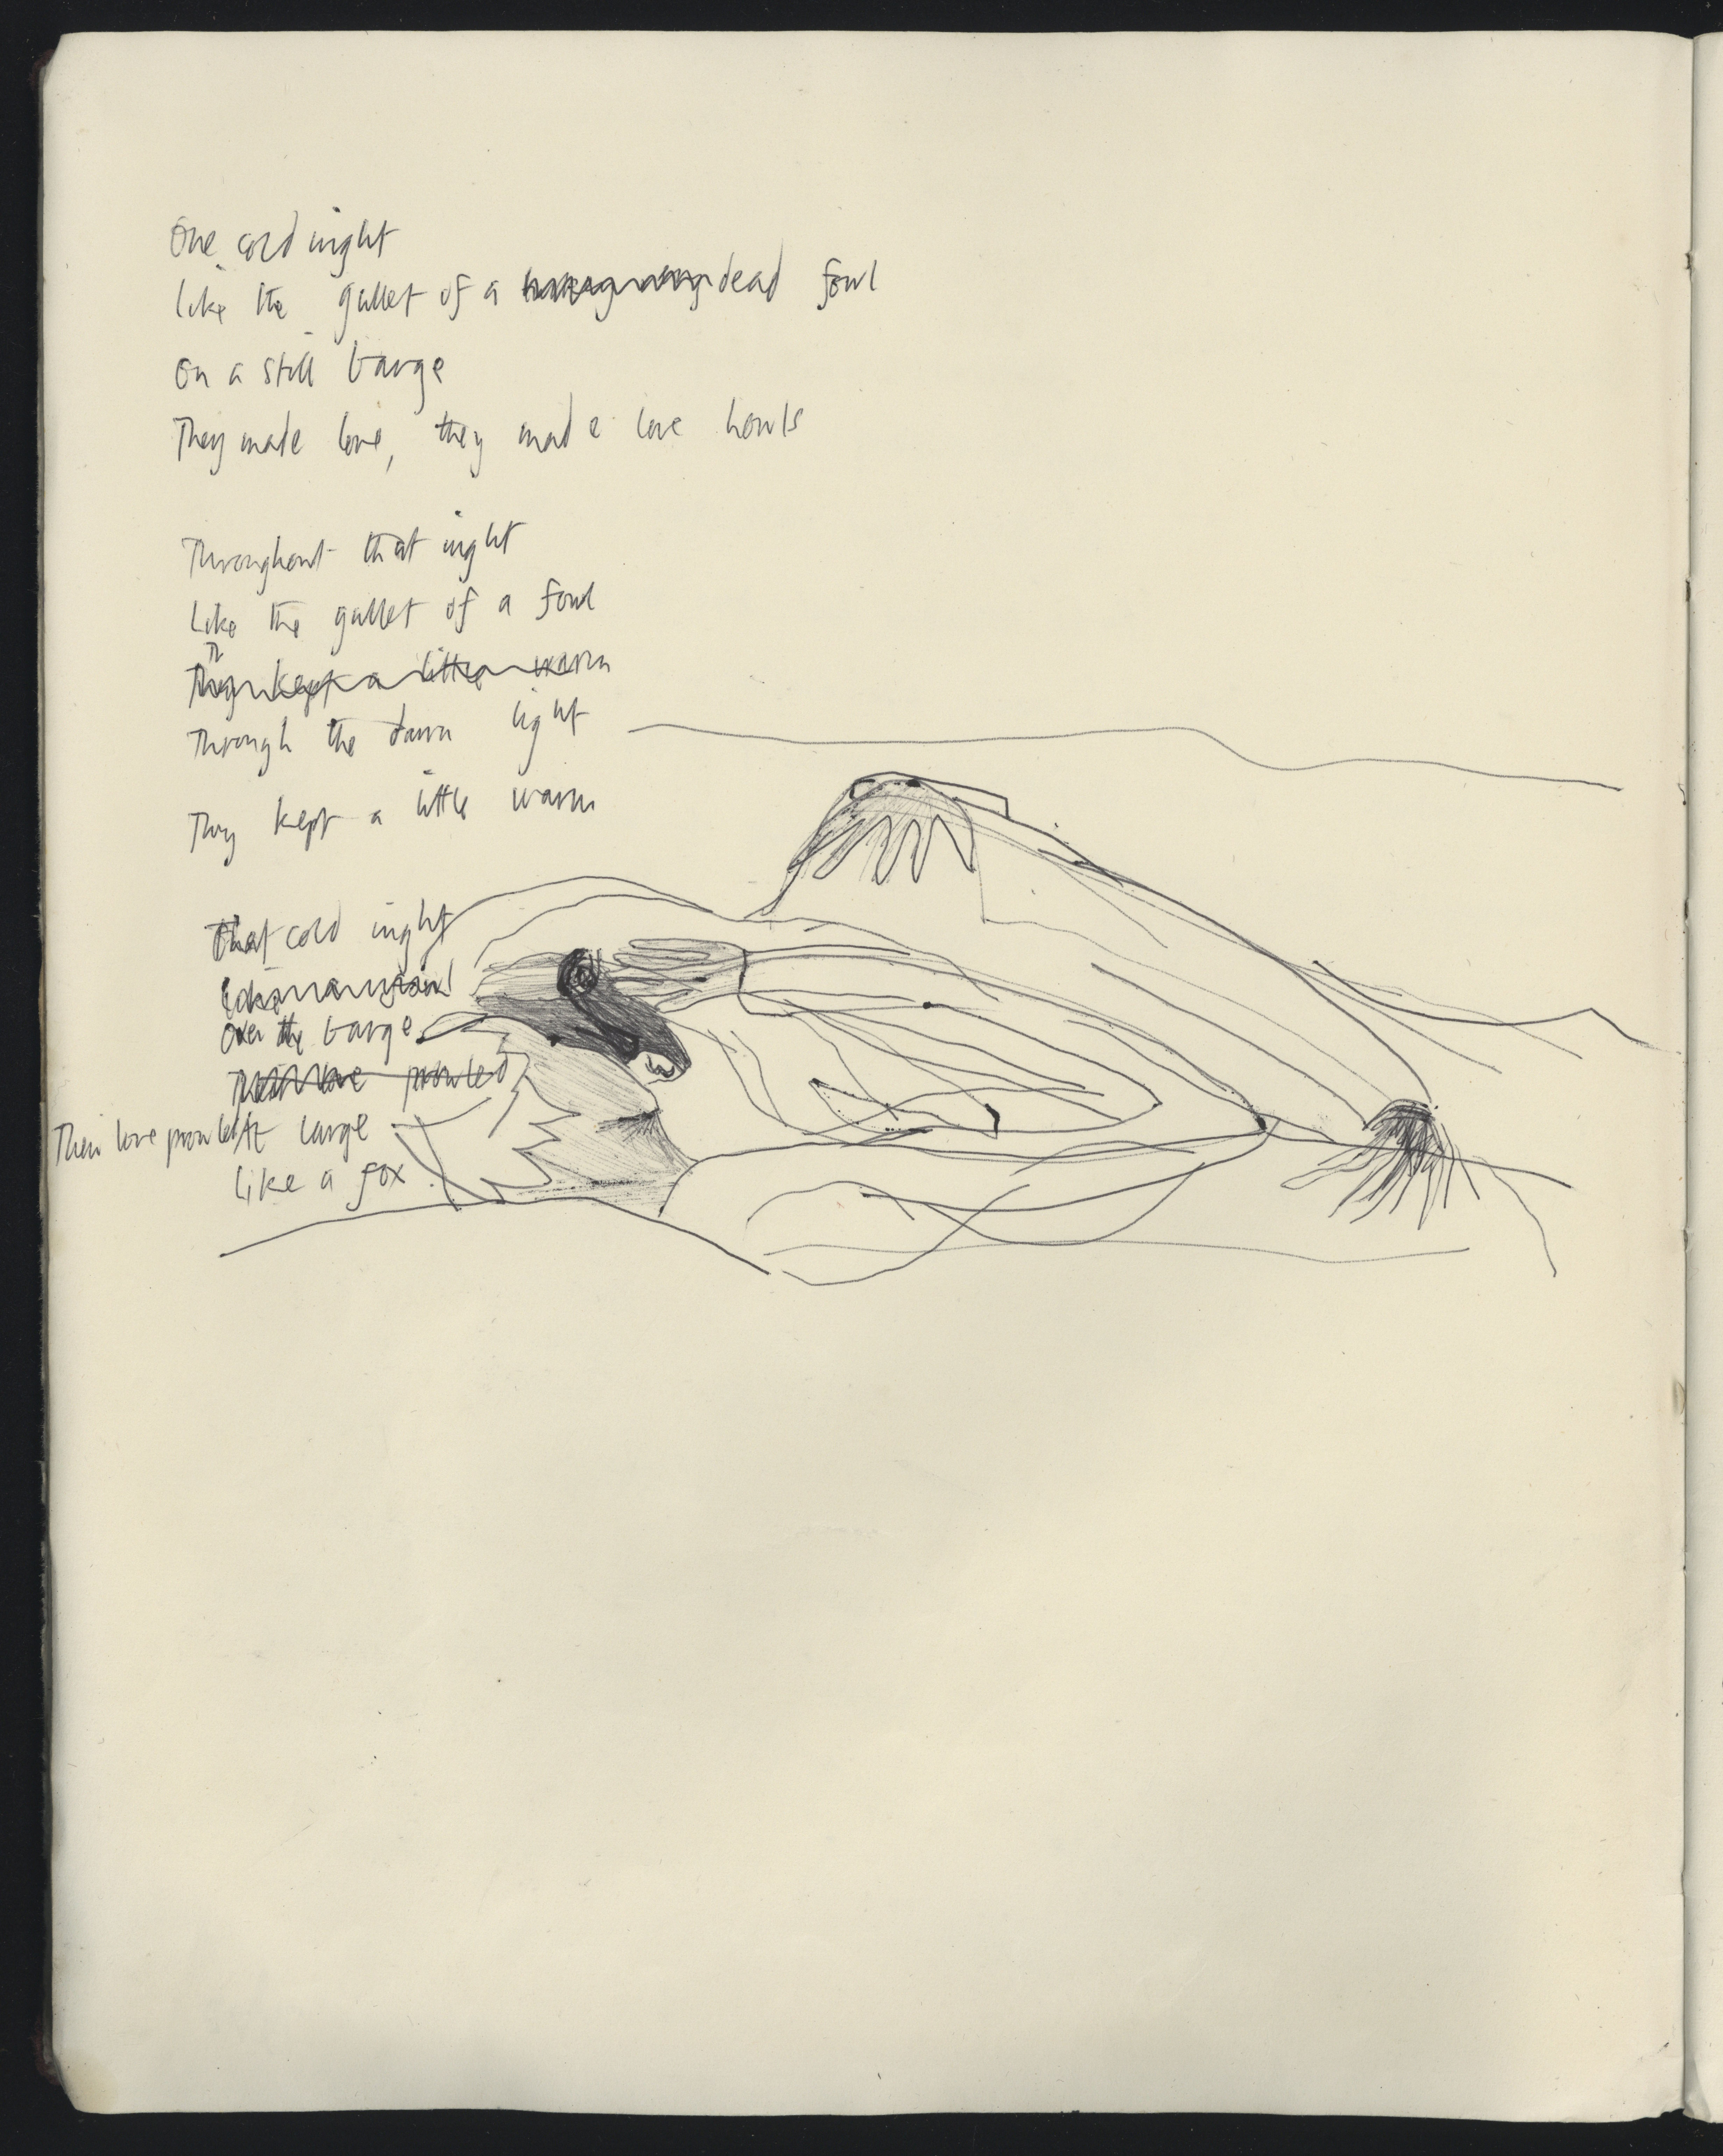 One cold night
like the gullet of a dead fowl
On a still barge
They made love, they made love howls
Throughout that night
Like the gullet of a fowl
They kept a little warm
Through the dawn light
They kept a little warm
That cold night
Over the barge
Their love prowled
Their love prowled At large
like a fox